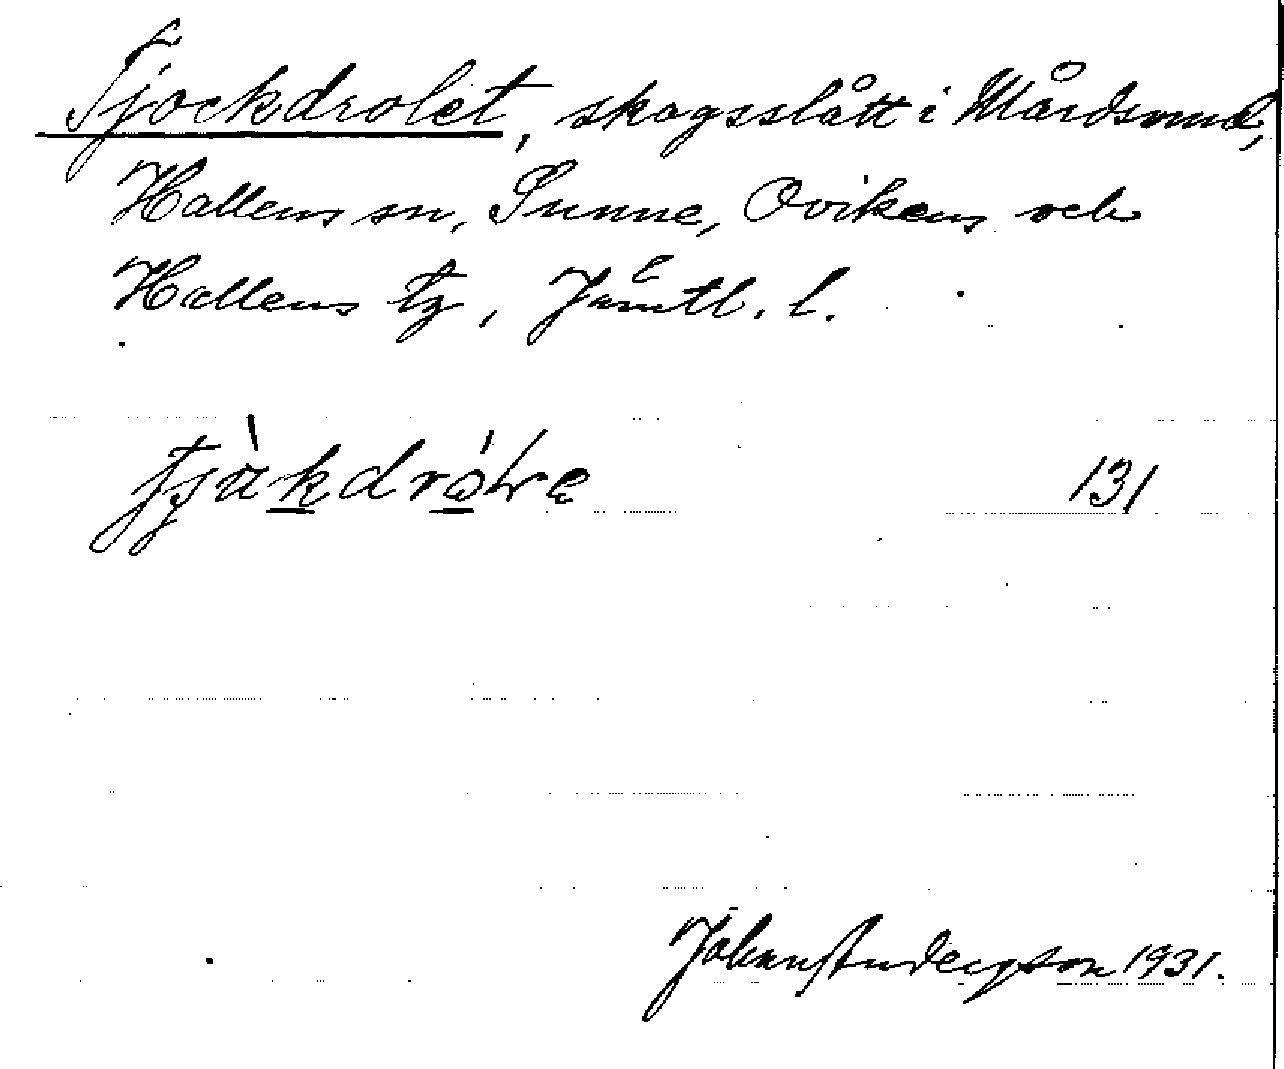 Tjockdrolet, skogsslått i Mårdsund,
Hallens sn, Sunne, Ovikens och
Hallens tg, Jämtl. l.
131
Johan Anderzson 1931.